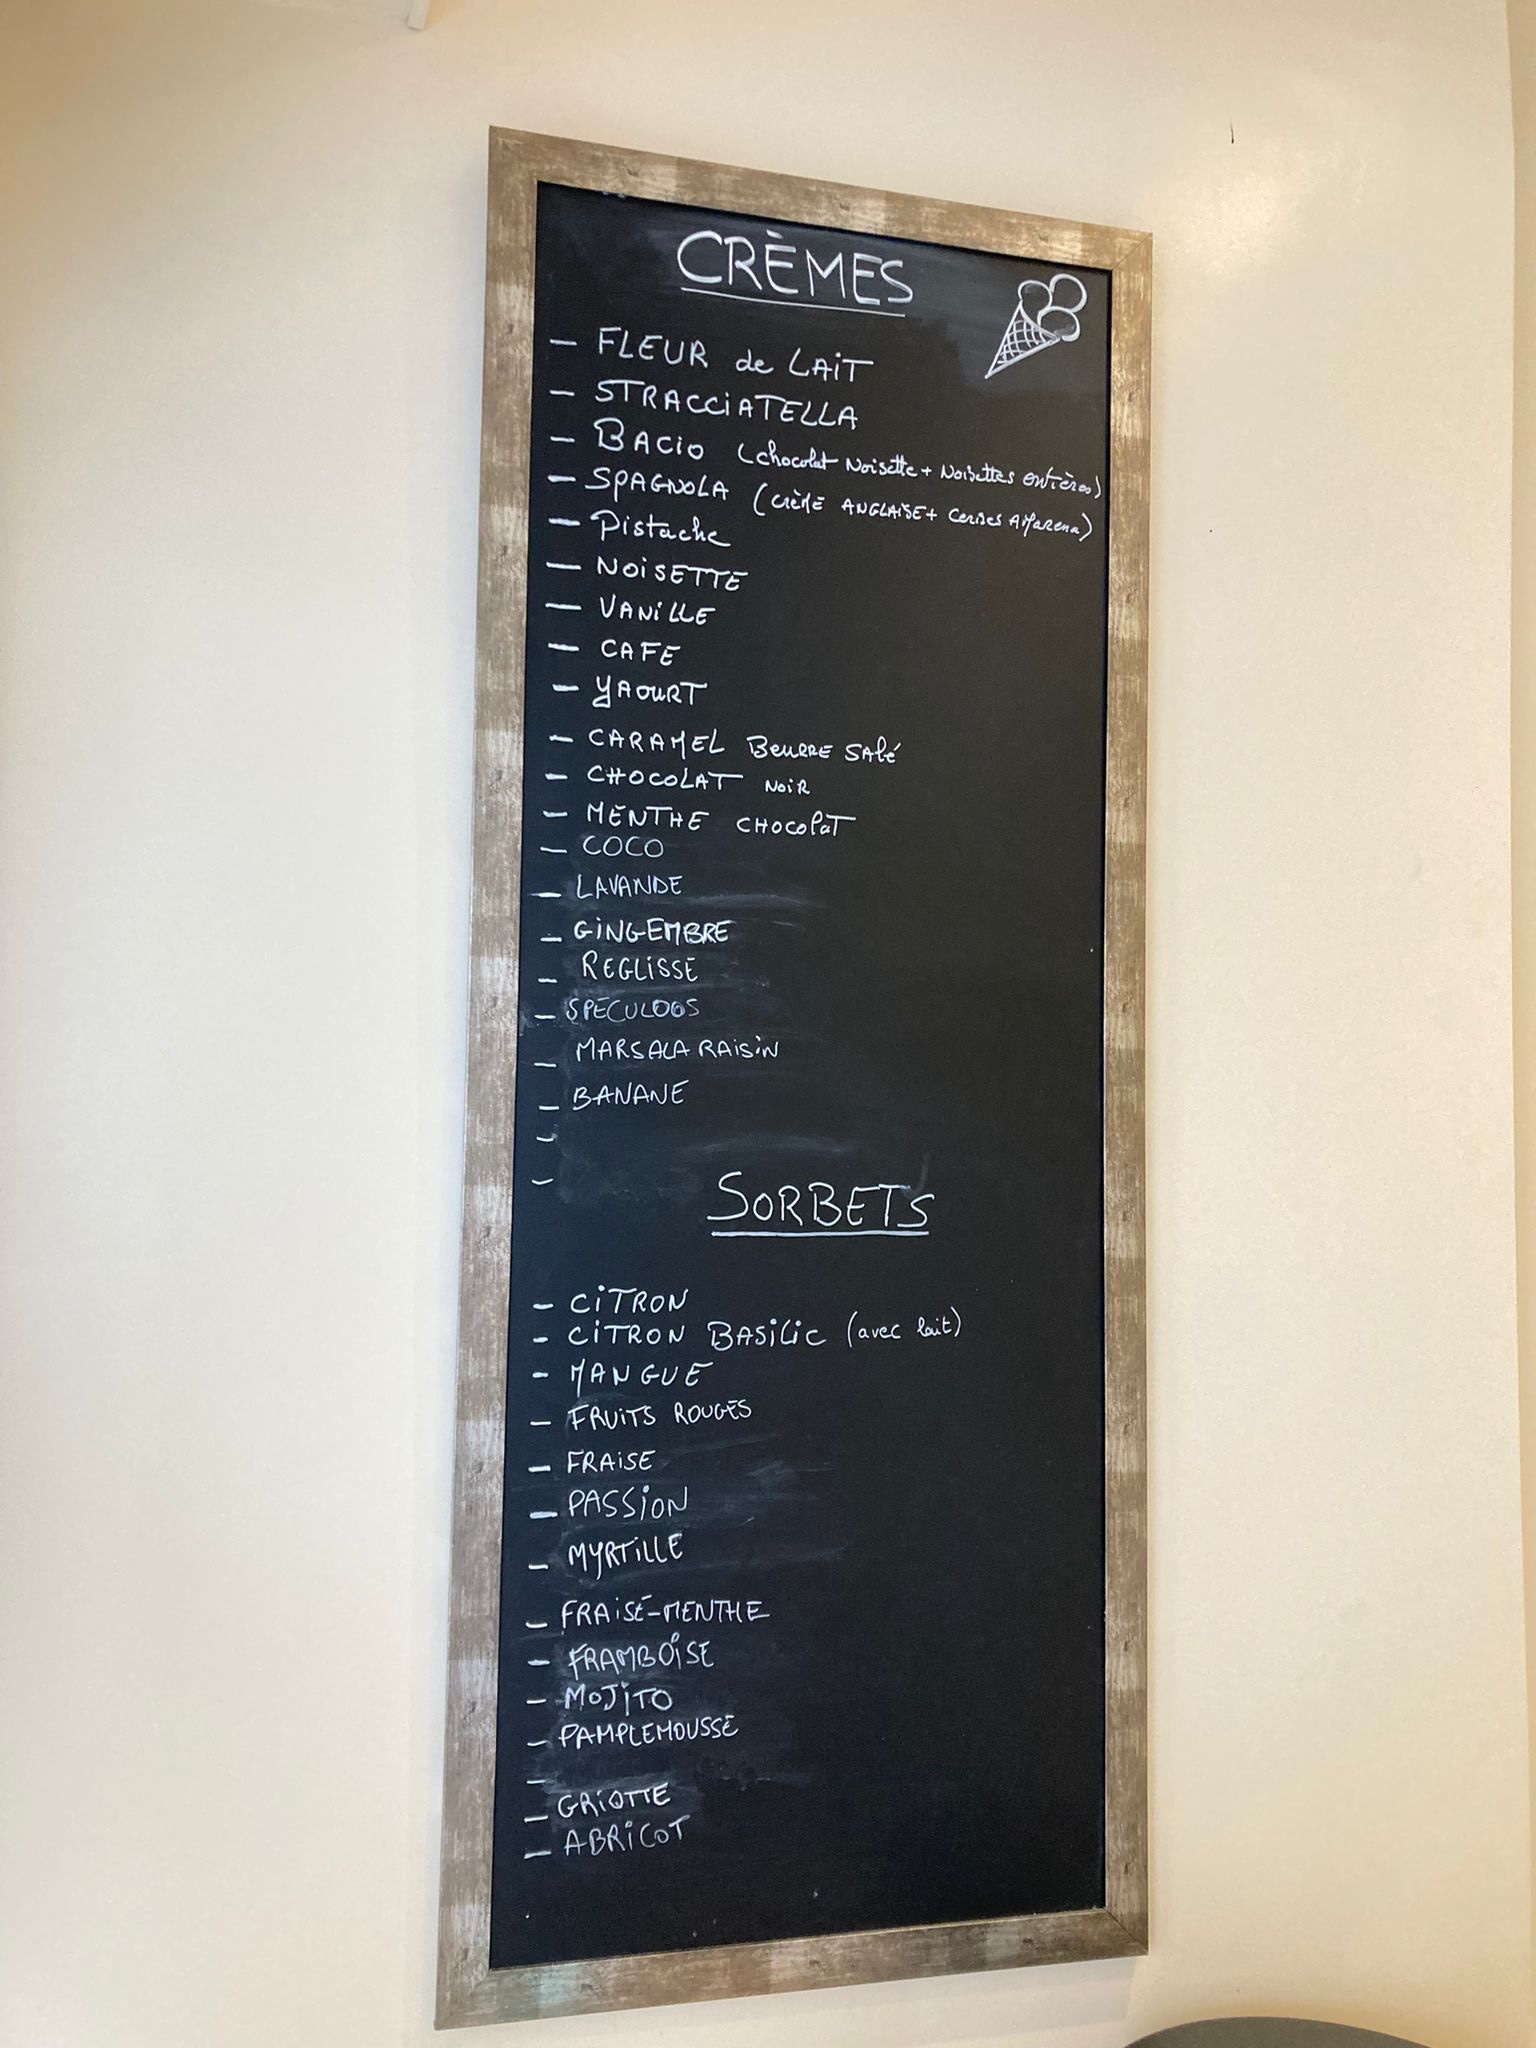 CRÈMES
- FLEUR de LAiT
- STRACCiATELLA
- BACiO (chocolat Noisette + Noisettes entières)
- SPAGNOLA (CRÈME ANGLAiSE + Cerises AMarena)
- Pistache
- NOiSETTE
- VANiLLE
- CAFE
- YAOURT
- CARAMEL BEURRE SAlé
- CHOCOLAT NOiR
- MENTHE CHOCOlaT
- COCO
- LAVANDE
- GiNGEMBRE
- REGLiSSE
- SPECULOOS
- MARSALA RAiSiN
- BANANE
-
-
SORBETS
- CiTRON
- CiTRON BASiLiC (avec lait)
- MANGUE
- FRUiTS ROUGES
- FRAiSE
- PASSiON
- MYRTiLLE
- FRAiSE-MENTHE
- FRAMBOiSE
- MOJiTO
- PAMPLEMOUSSE
-
- GRiOTTE
- ABRiCOT